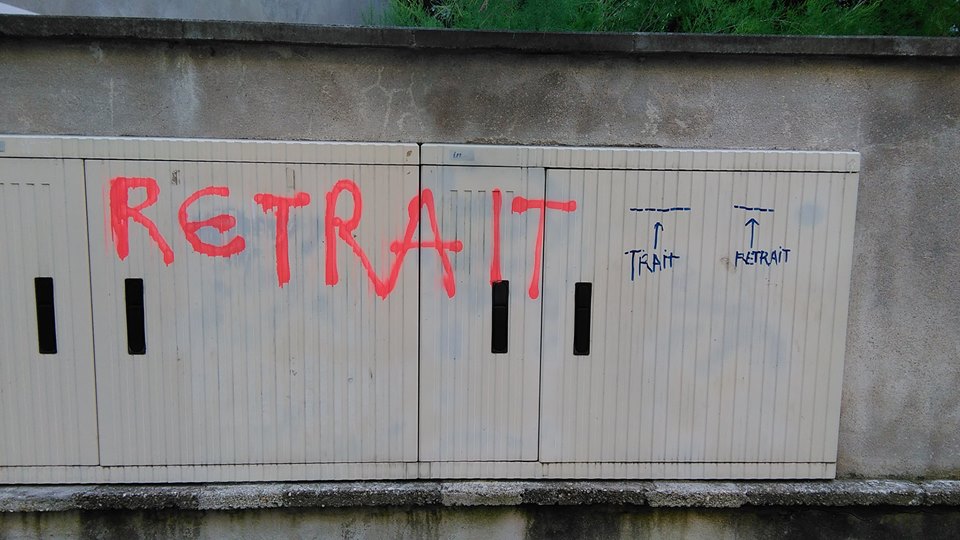 RETRAIT
TRAIT
RETRAIT